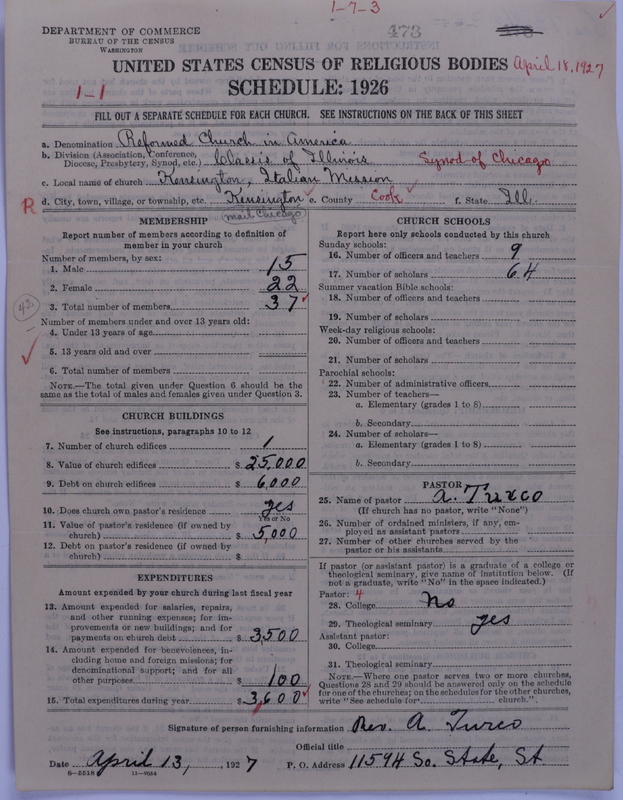 1-7-3
DEPARTMENT OF COMMERCE
BUREAU OF THE CENSUS
WASHINGTON
473
UNITED STATES CENSUS OF RELIGIOUS BODIES April 18, 1927
1-1
SCHEDULE: 1926
FILL OUT A SEPARATE SCHEDULE FOR EACH CHURCH. SEE INSTRUCTIONS ON THE BACK OF THIS SHEET
a. Denomination Reformed Church in America
b. Division (Association, Conference, Diocese, Presbytery, Synod, etc.) Classis of Illinois Synod of Chicago
c. Local name of church Kensington, Italian Mission
R
d. City, town, village, or township, etc. Kensington e. County Cook f. State Ill.
mail Chicago
MEMBERSHIP
Report number of members according to definition of
member in your church
Number of members, by sex:
1. Male 15
2. Female 22
3. Total number of members 37
42
Number of members under and over 13 years old:
4. Under 13 years of age
5. 13 years old and over
6. Total number of members
NOTE.—The total given under Question 6 should be the
same as the total of males and females given under Question 3.
CHURCH BUILDINGS
See instructions, paragraphs 10 to 12
7. Number of church edifices 1
8. Value of church edifices $ 25,000
9. Debt on church edifices $ 6,000
10. Does church own pastor's residence yes
Yes or No
11. Value of pastor's residence (if owned by
church) $ 5,000
12. Debt on pastor's residence (if owned by
church) $
EXPENDITURES
Amount expended by your church during last fiscal year
13. Amount expended for salaries, repairs,
and other running expenses; for im-
provements or new buildings; and for
payments on church debt $ 3,500
14. Amount expended for benevolences, in-
cluding home and foreign missions; for
denominational support; and for all
other purposes $ 100
15. Total expenditures during year $ 3,600
CHURCH SCHOOLS
Report here only schools conducted by this church
Sunday schools:
16. Number of officers and teachers 9
17. Number of scholars 64
Summer vacation Bible schools:
18. Number of officers and teachers
19. Number of scholars
Week-day religious schools:
20. Number of officers and teachers
21. Number of scholars
Parochial schools:
22. Number of administrative officers
23. Number of teachers—
a. Elementary (grades 1 to 8)
b. Secondary
24. Number of scholars—
a. Elementary (grades 1 to 8)
b. Secondary
PASTOR
25. Name of pastor A. Turco
(If church has no pastor, write "None")
26. Number of ordained ministers, if any, em-
ployed as assistant pastors
27. Number of other churches served by the
pastor or his assistants
If pastor (or assistant pastor) is a graduate of a college or
theological seminary, give name of institution below. (If
not a graduate, write "No" in the space indicated.)
Pastor: 4
28. College No
29. Theological seminary yes
Assistant pastor:
30. College
31. Theological seminary
NOTE.—Where one pastor serves two or more churches,
Questions 28 and 29 should be answered only on the schedule
for one of the churches; on the schedules for the other churches,
write "See schedule for church."
Signature of person furnishing information Rev. A. Turco
Official title
Date April 13, 1927 P. O. Address 11594 So. State, St
8-5518 11-9054